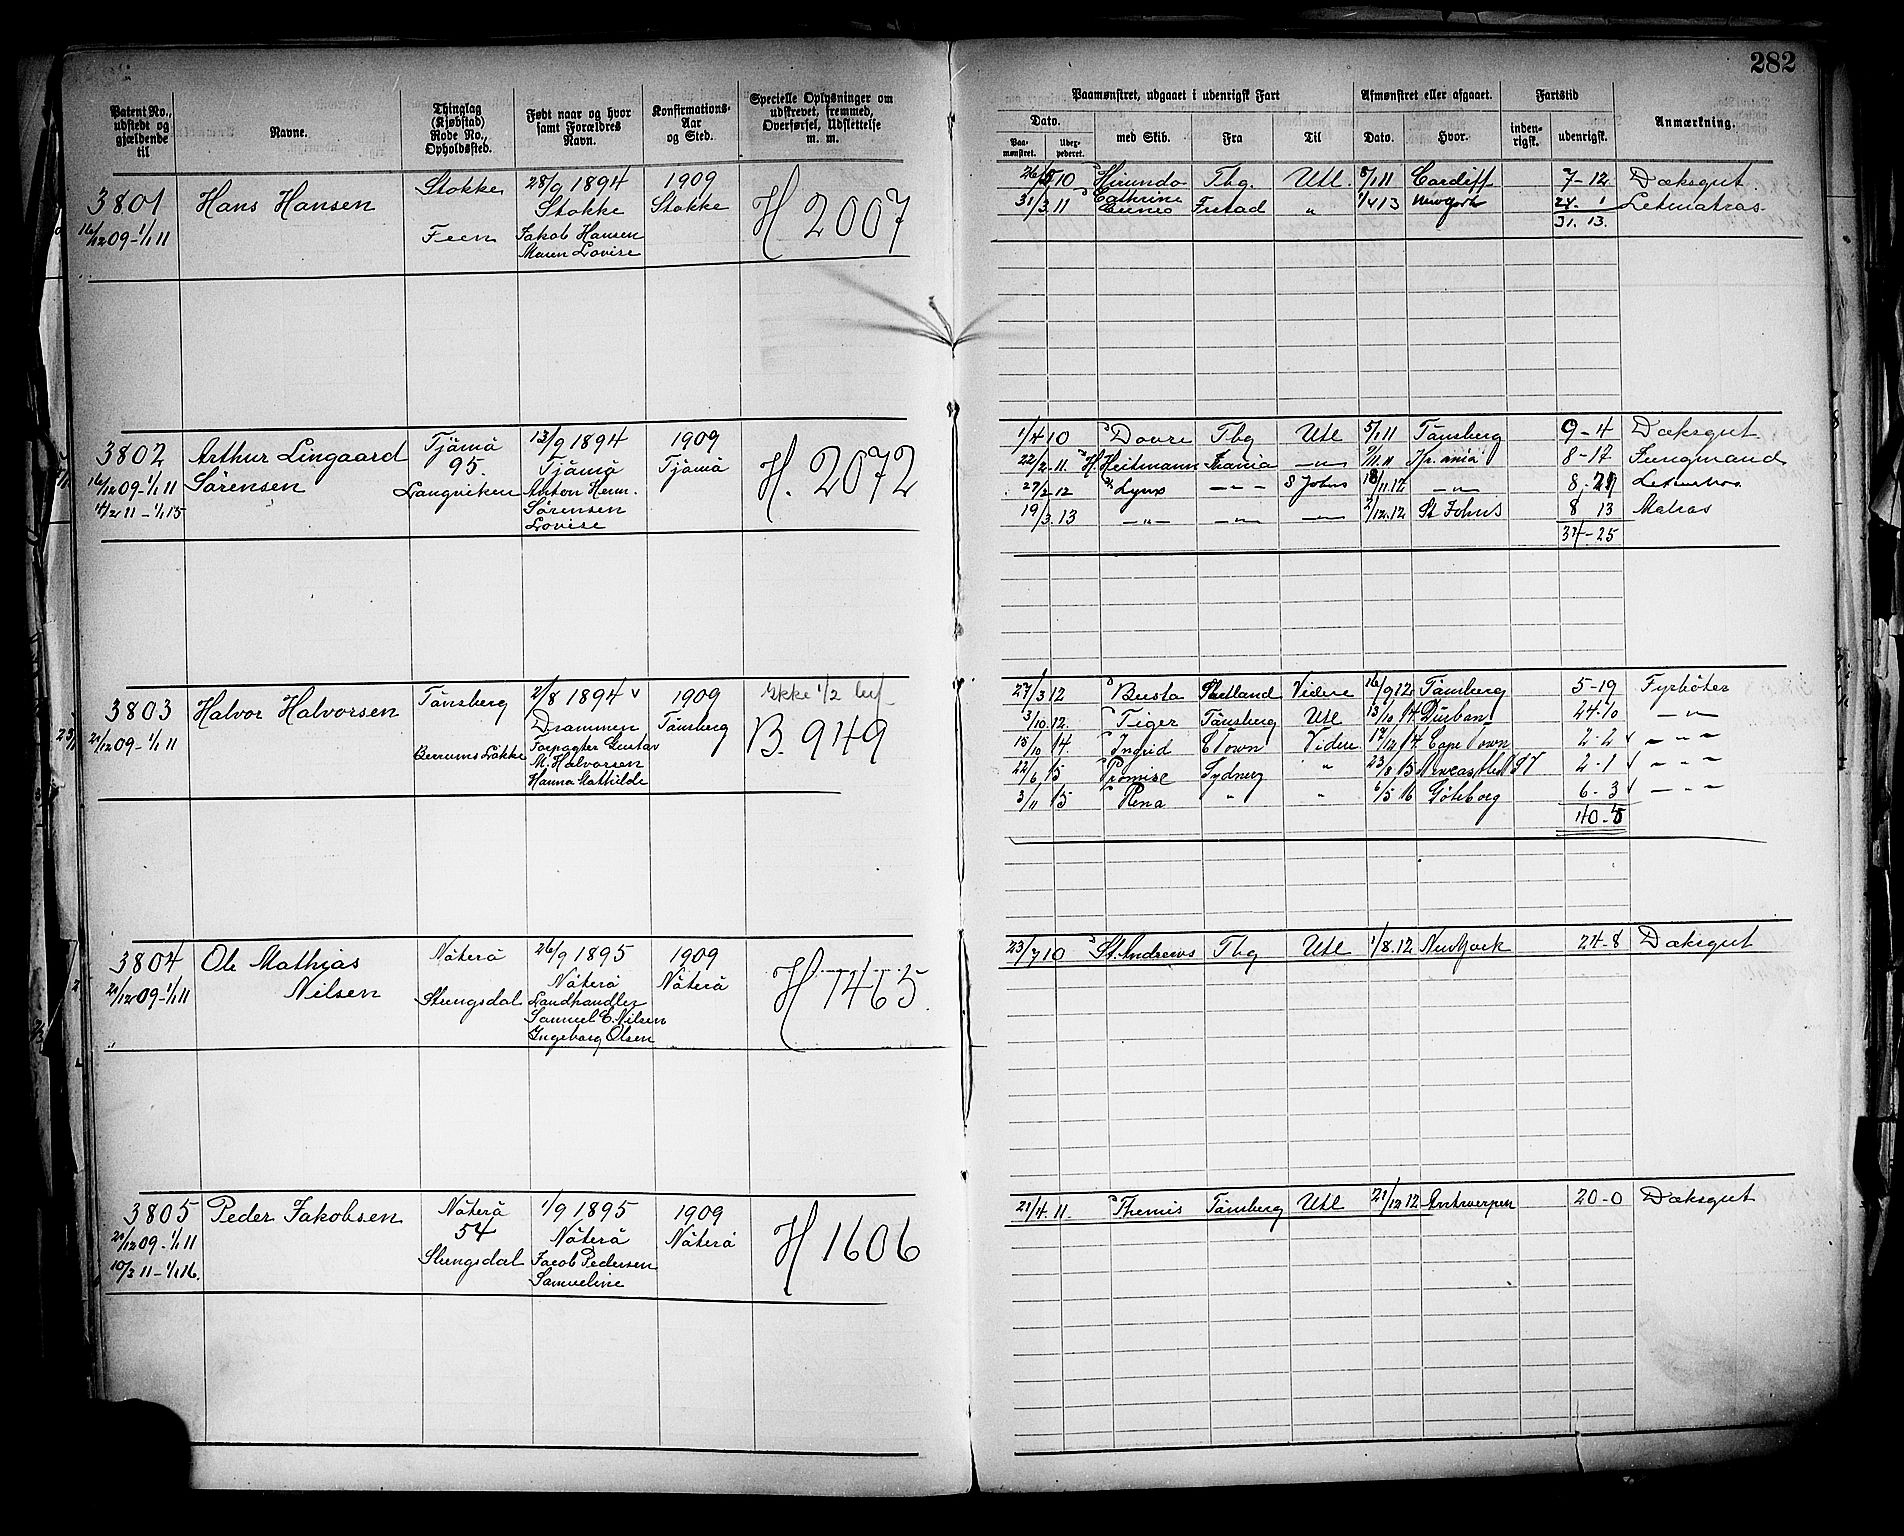 282
Patent No., udstedt og gjældende til
Navne.
Thinglag (Kjøbstad) Rode No., Opholdssted.
Født naar og hvor samt Forældres Navn.
Konfirmations-Aar og Sted.
Specielle Oplysninger om udstrevet, fremmed, Overførsel, Udslettelse m. m.
Paamønstret, udgaaet i udenrigsk Fart
Afmønstret eller afgaaet.
Fartstid
Anmærkning.
Dato.
med Skib.
Fra
Til
Dato.
Hvor.
inden-rigsk.
udenrigsk.
Paa-mønstret.
3801
Hans Hansen
Stokke
28/9 1894
1909
H 2007
16/12 09-1/1 11
Feen
Stokke
Stokke
Jakob Hansen
Maren Lovise
10 Hirundo Tbg. Utl. 5/1 11 Cardiff 7-12 Dæksgut
31/3 11 Cathrine Fr.stad " 1/4 13 New York 24. 1 Letmatros
31. 13.
3802
Arthur Lingaard
Sørensen
Tjømø
95.
Langviken
13/9 1894
Tjømø
Anton Herm.
Sørensen
Lovise
1909
Tjømø
H. 2072
16/12 09-1/1 11
11-1/1 15
1/4 10 Dovre Tbg Utl 5/1 11 Tønsberg 9-4 Dæksgut
22/2 11 H. Heitmann Krania -"- Kr.ania 8-17 Jungmand
27/2 12 Lynx -"- S Johns 11.12 -"- 8. 21 Letmatros
19/3. 13 -"- -"- -"- 2/12.12 St Johns 8 13 Matros
34-25
3803
Halvor Halvorsen
Tønsberg
2/8 1894 v
1909
Ikke 1/2 bef
B. 949
21/12 09-1/1 11
Berrums Løkke
Drammen
Forpagter Gustav
M. Halvorsen
Hanna Mathilde
Tønsberg
27/3 12 Busta Shetland Videre 16/9 12 Tønsberg 5-19 Fyrbøter
3/10 12. Tiger Tønsberg Utl 13/10 14 Durban 24-10 -"-
18/10 14. Ingrid C Town Videre 17/12 14 Cape Town 2-2 -"-
22/6 15 Promise Sydney " 23/8 15 2-1 -"-
3/11 15 Rena " " 6/5 16 Göteborg 6-3 -"-
40-5
3804
Ole Mathias
Nilsen
Nøterø
Strengsdal
26/9 1895
Nøterø
Landhandler
Samuel E. Nilsen
Ingeborg Olsen
1909
Nøterø
H 1465.
21/12 09-1/1 11
23/7 10 St. Andrews Tbg Utl 1/8.12 New York 24-8 Dæksgut
3805
Peder Jakobsen
Nøterø
54
Strengsdal
1/9 1895
Nøterø
Jacob Pedersen
Samueline
1909
Nøterø
H 1606
21/12 09-1/1 11
10/3 11-1/1 16.
21/4. 11. Themis Tønsberg Utl 21/12 12 Antwerpen 20-0 Dæksgut